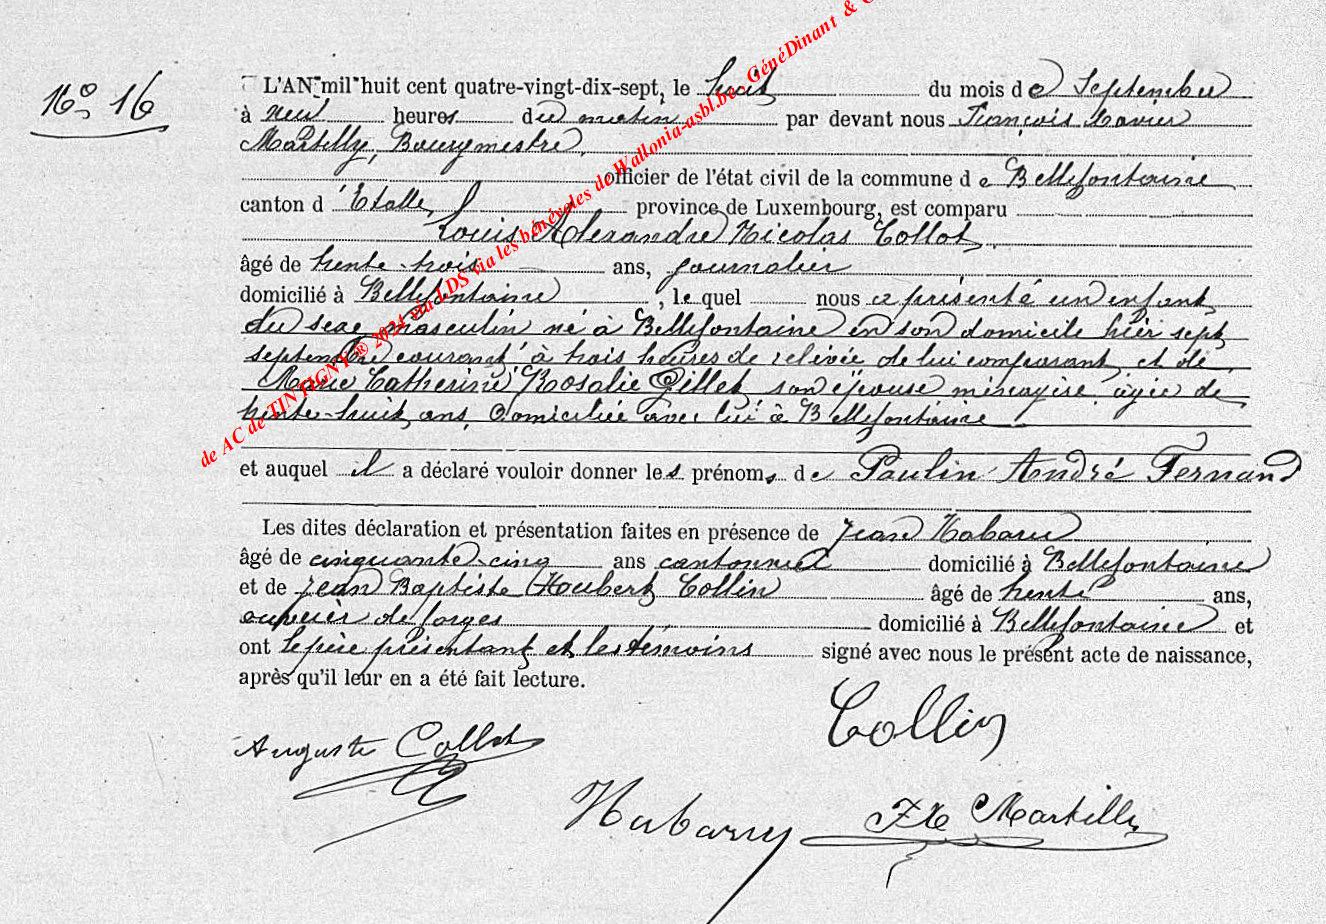 N° 16
L'AN mil huit cent quatre-vingt-dix-sept, le huit du mois de Septembre
à neuf heures du matin par devant nous François Xavier
Martilly, Bourgmestre,
officier de l'état civil de la commune de Bellefontaine
canton d'Etalle, province de Luxembourg, est comparu
Louis Alexandre Nicolas Collot
âgé de trente-trois ans, journalier
domicilié à Bellefontaine, le quel nous a présenté un enfant
du sexe masculin né à Bellefontaine en son domicile hier sept
septembre courant, à trois heures de relevée de lui comparant et de
Marie Catherine Rosalie Gillet son épouse ménagère, agée de
trente-huit ans, domiciliée avec lui à Bellefontaine
et auquel il a déclaré vouloir donner les prénoms de Paulin André Fernand
Les dites déclaration et présentation faites en présence de Jean Habaru
âgé de cinquante-cinq ans cantonnier domicilié à Bellefontaine
et de Jean Baptiste Houbert Collin âgé de trente ans,
ouvrier de forges domicilié à Bellefontaine et
ont le père présentant et les témoins signé avec nous le présent acte de naissance,
après qu'il leur en a été fait lecture.
Collin
Auguste Collot
Habarru
FX Martilly
de AC de TINTIGNY ® 2024 via LDS via les bénévoles de Wallonia-asbl.be - GénéDinant &